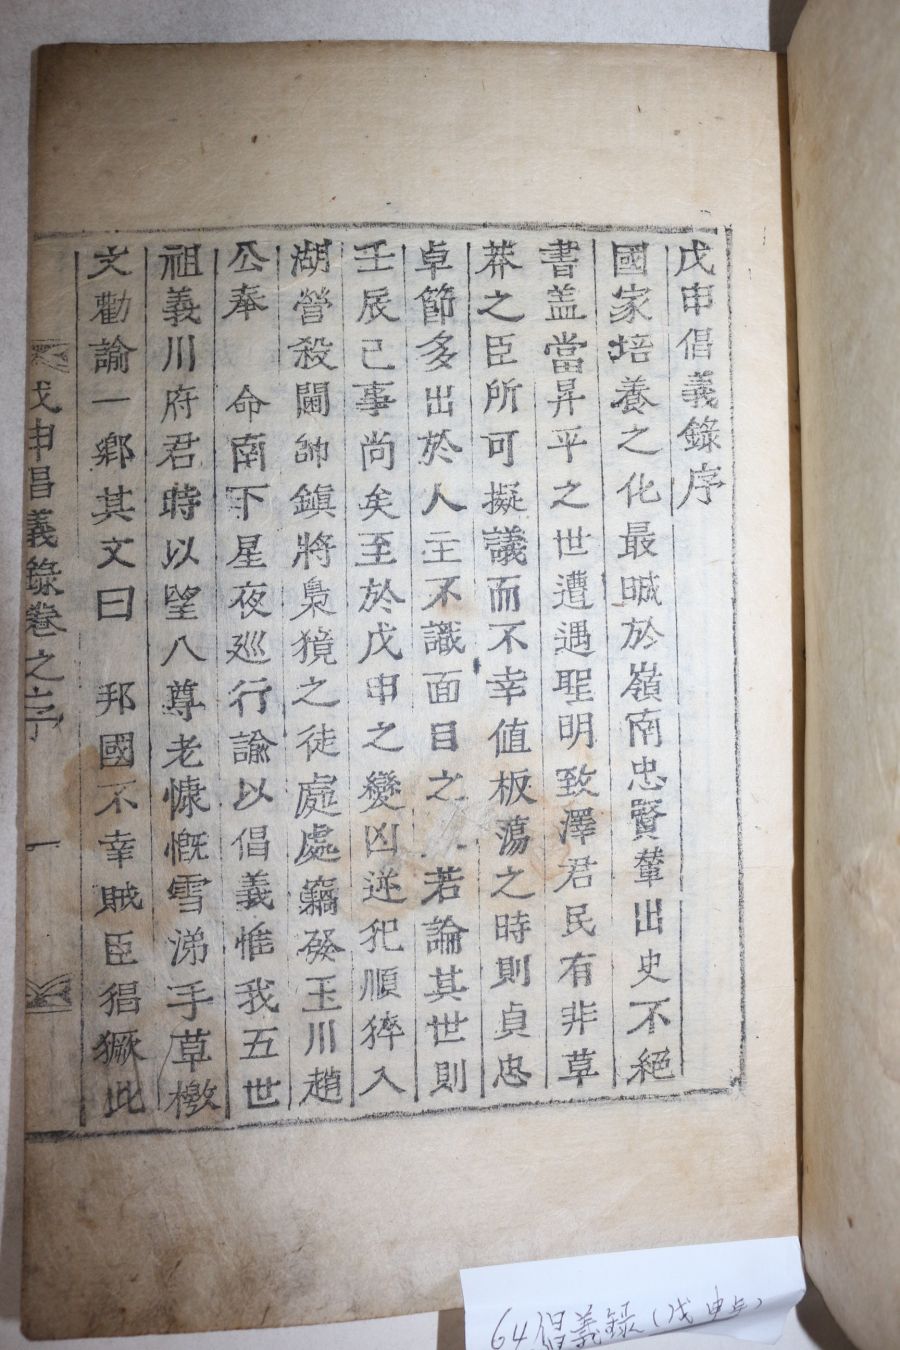 戊申倡義錄序
國家培養之化最晠於嶺南忠賢輩出史不絕
書盖當昇平之世遭遇聖明致澤君民有非草
莽之臣所可擬議而不幸值板蕩之時則貞忠
卓節多出於人主不識面目之 若論其世則
壬辰已事尚矣至於戊申之變凶逆犯順猝入
湖營殺閫帥鎮將梟獍之徒處處竊發玉川趙
公奉 命南下星夜廵行諭以倡義惟我五世
祖義川府君時以望八尊老慷慨雪涕手草檄
文勸諭一鄉其文曰 邦國不幸賊臣猖獗此
戊申倡義錄卷之序 一
64 倡義錄(戊申년)